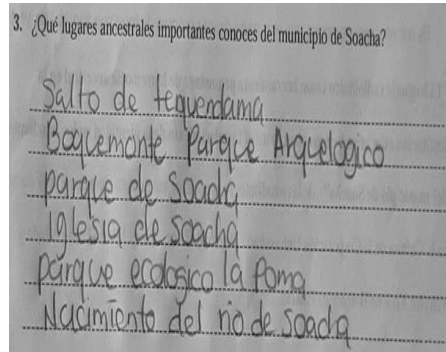 3. ¿Qué lugares ancestrales importantes conoces del municipio de Soacha?
Salto de tequendama
Boquemonte Parque Arquelogico
parque de Soacha
iglesia de soacha
parque ecologico la Poma
Nacimiento del rio de soacha